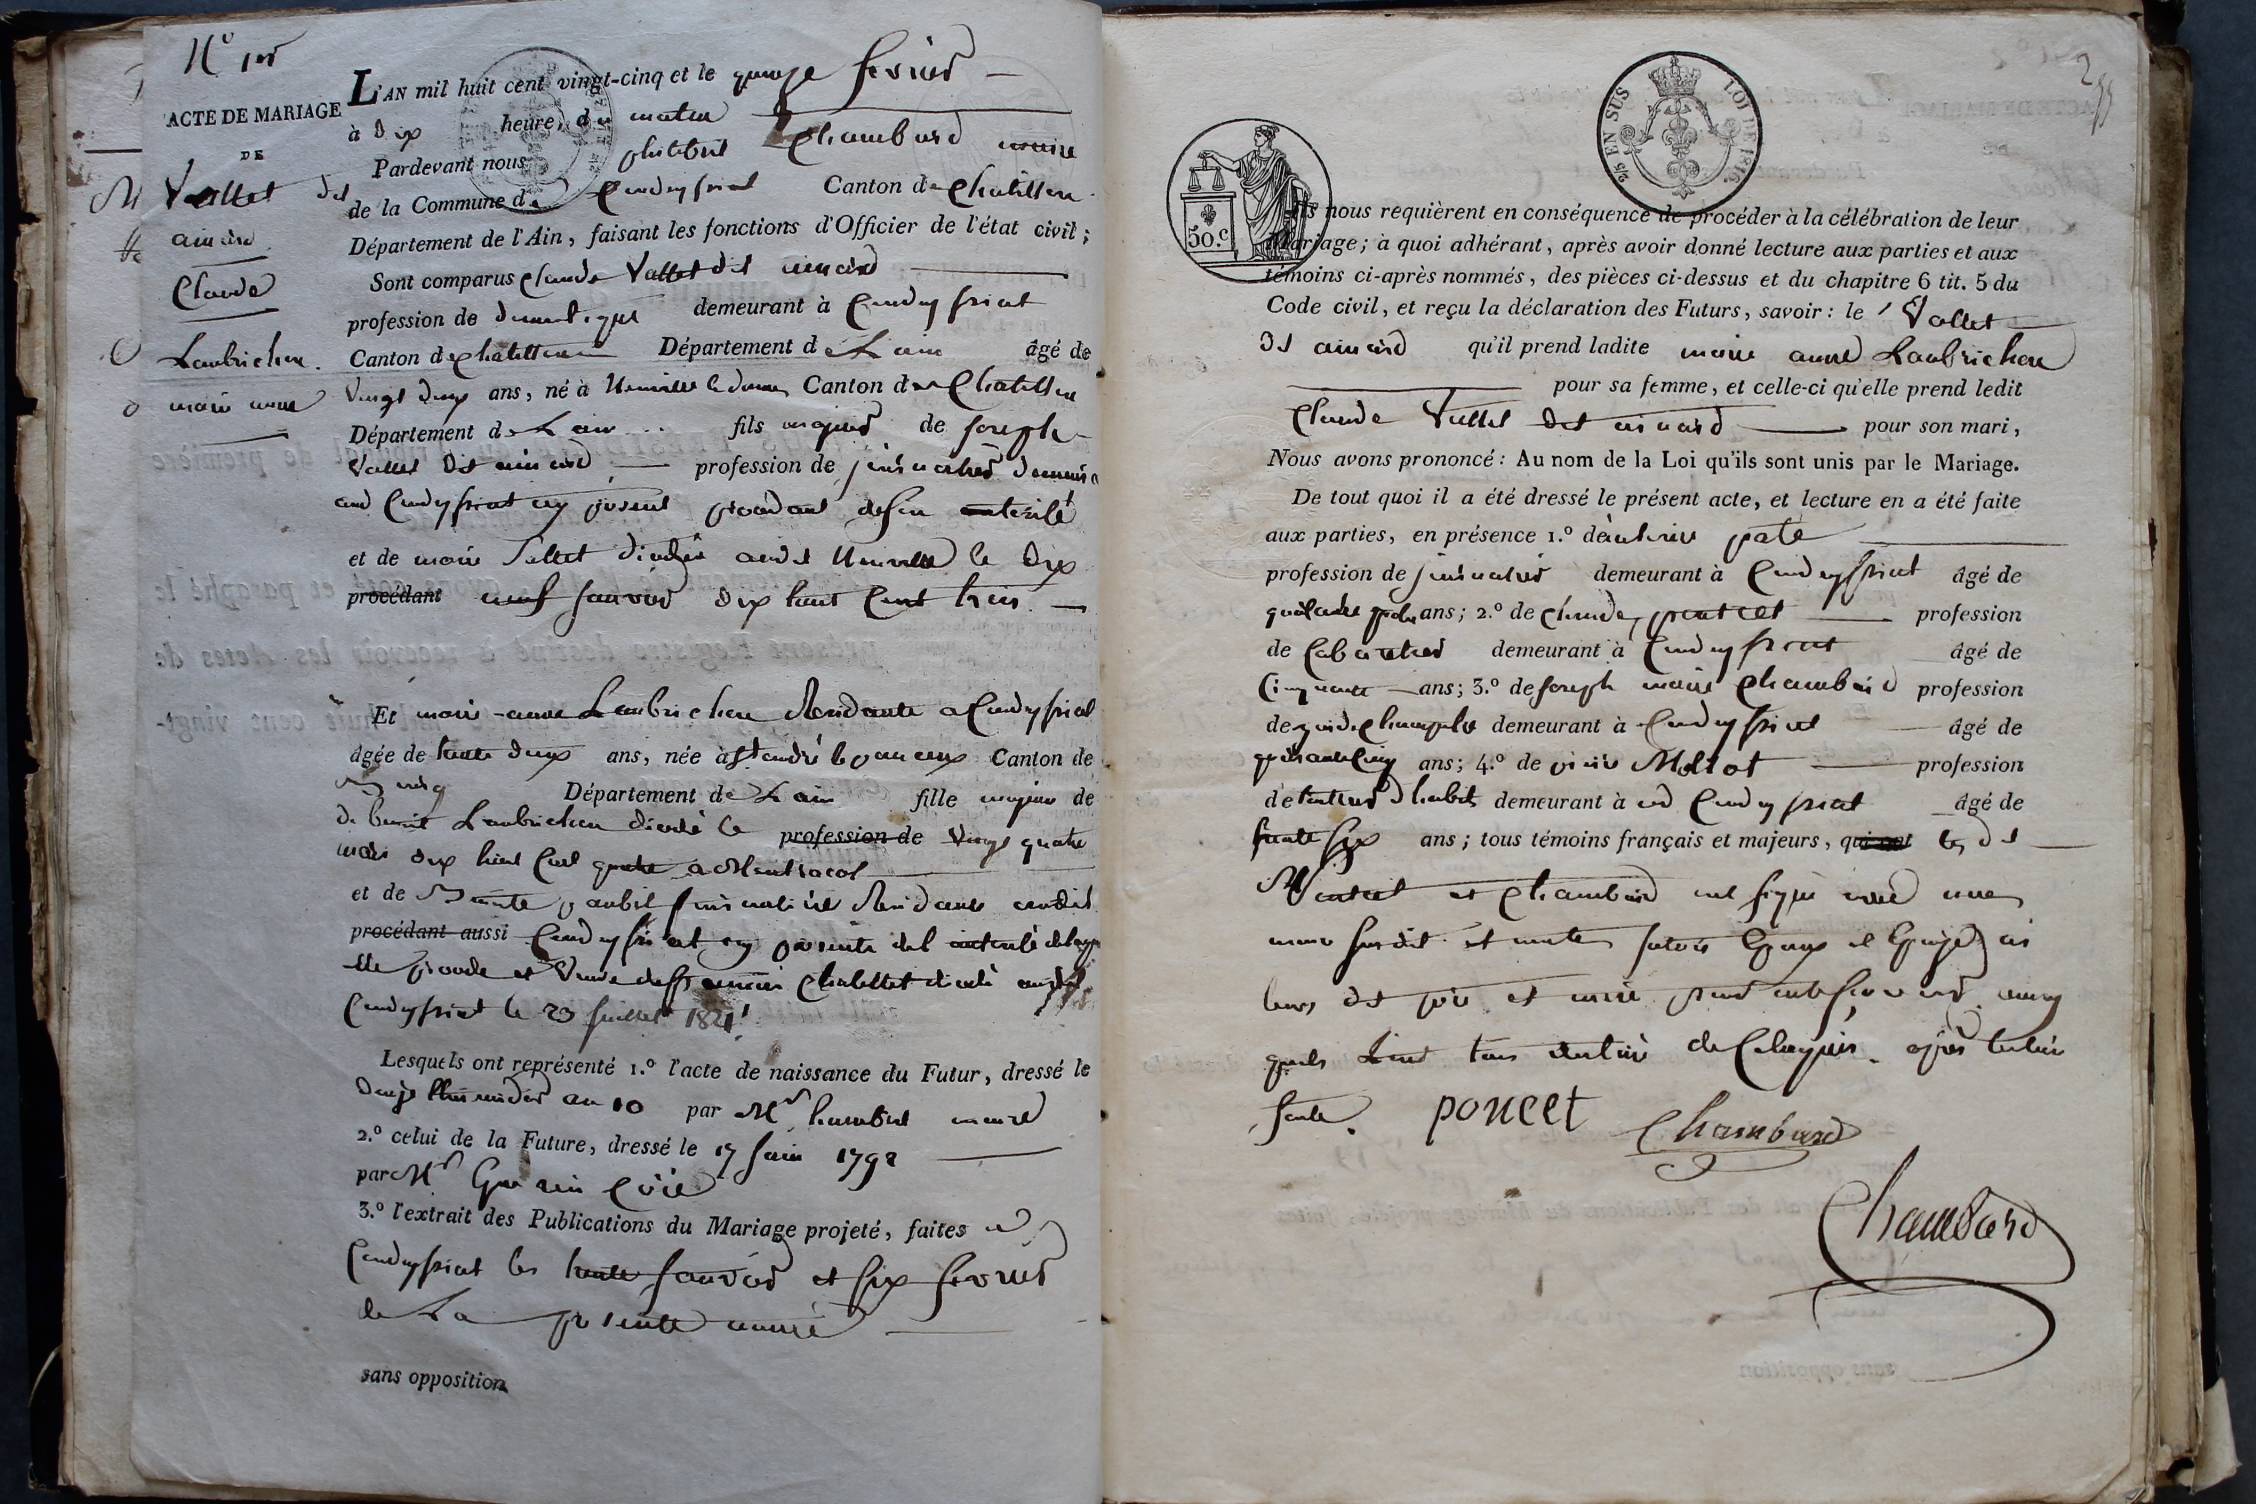 N° 1er
ACTE DE MARIAGE
DE
Vallet dit
ainard
Claude
Laubrichon
marie anne
L'AN mil huit cent vingt-cinq et le quinze fevrier
à dix heures du matin
Pardevant nous philibert Chambard maire
de la Commune de Condeyssiat Canton de Chatillon
Département de l'Ain, faisant les fonctions d'Officier de l'état civil;
Sont comparus Claude Vallet dit ainard
profession de domestique demeurant à Condeyssiat
Canton de chatillon Département de L'ain âgé de
Vingt deux ans, né à Neuville les dames Canton de Chatillon
Département de L'ain fils majeur de joseph
Vallet dit ainard profession de journalier demeur
ant Condeyssiat cy présent procédant de son autorité
et de marie Vallet décédée audit Neuville le dix
procédant neuf janvier dix huit Cent trois
Et marie anne Laubrichon Résidante a Condeyssiat
âgée de trente deux ans, née à St andré le panoux Canton de
Département de L'ain fille majeure de
de benoit Laubrichon décédé le profession de Vingt quatre
mars dix huit Cent quatre a Montracol
et de Benoite journalière Résidante audit
procédant aussi Condeyssiat cy présente de l'autorité de laquelle
elle procède et Veuve de Chatillet décédé audit
Condeyssiat le 23 juillet 1821
Lesquels ont représenté 1.º l'acte de naissance du Futur, dressé le
douze an 10 par Mr Chambard maire
2.º celui de la Future, dressé le 17 juin 1792
par Mr Guerin Curé
3.º l'extrait des Publications du Mariage projeté, faites a
Condeyssiat les trente janvier et six fevrier
de La présente année
sans opposition
2
25 EN SUS
LOI DE 1816.
50.c
Ils nous requièrent en conséquence de procéder à la célébration de leur
Mariage; à quoi adhérant, après avoir donné lecture aux parties et aux
témoins ci-après nommés, des pièces ci-dessus et du chapitre 6 tit. 5 du
Code civil, et reçu la déclaration des Futurs, savoir: le Vallet
dit ainard qu'il prend ladite marie anne Laubrichon
pour sa femme, et celle-ci qu'elle prend ledit
Claude Vallet dit ainard pour son mari,
Nous avons prononcé: Au nom de la Loi qu'ils sont unis par le Mariage.
De tout quoi il a été dressé le présent acte, et lecture en a été faite
aux parties, en présence 1.º d'antoine paté
profession de journalier demeurant à Condeyssiat âgé de
quarante ans; 2.º de claude poncet profession
de Cabaretier demeurant à Condeyssiat âgé de
Cinquante ans; 3.º de joseph marie Chambard profession
de garde Champetre demeurant à Condeyssiat âgé de
ans; 4.º de pierre profession
de tailleur d'habits demeurant à Condeyssiat âgé de
trente six ans; tous témoins français et majeurs, qui ont les dits
poncet et Chambard ont signé avec nous
maire susdit et non les futurs Epoux et Epouse, ni
leurs dits père et mère pour ne le savoir, aux
quels Lecture faite.
poncet Chambard
Chambard